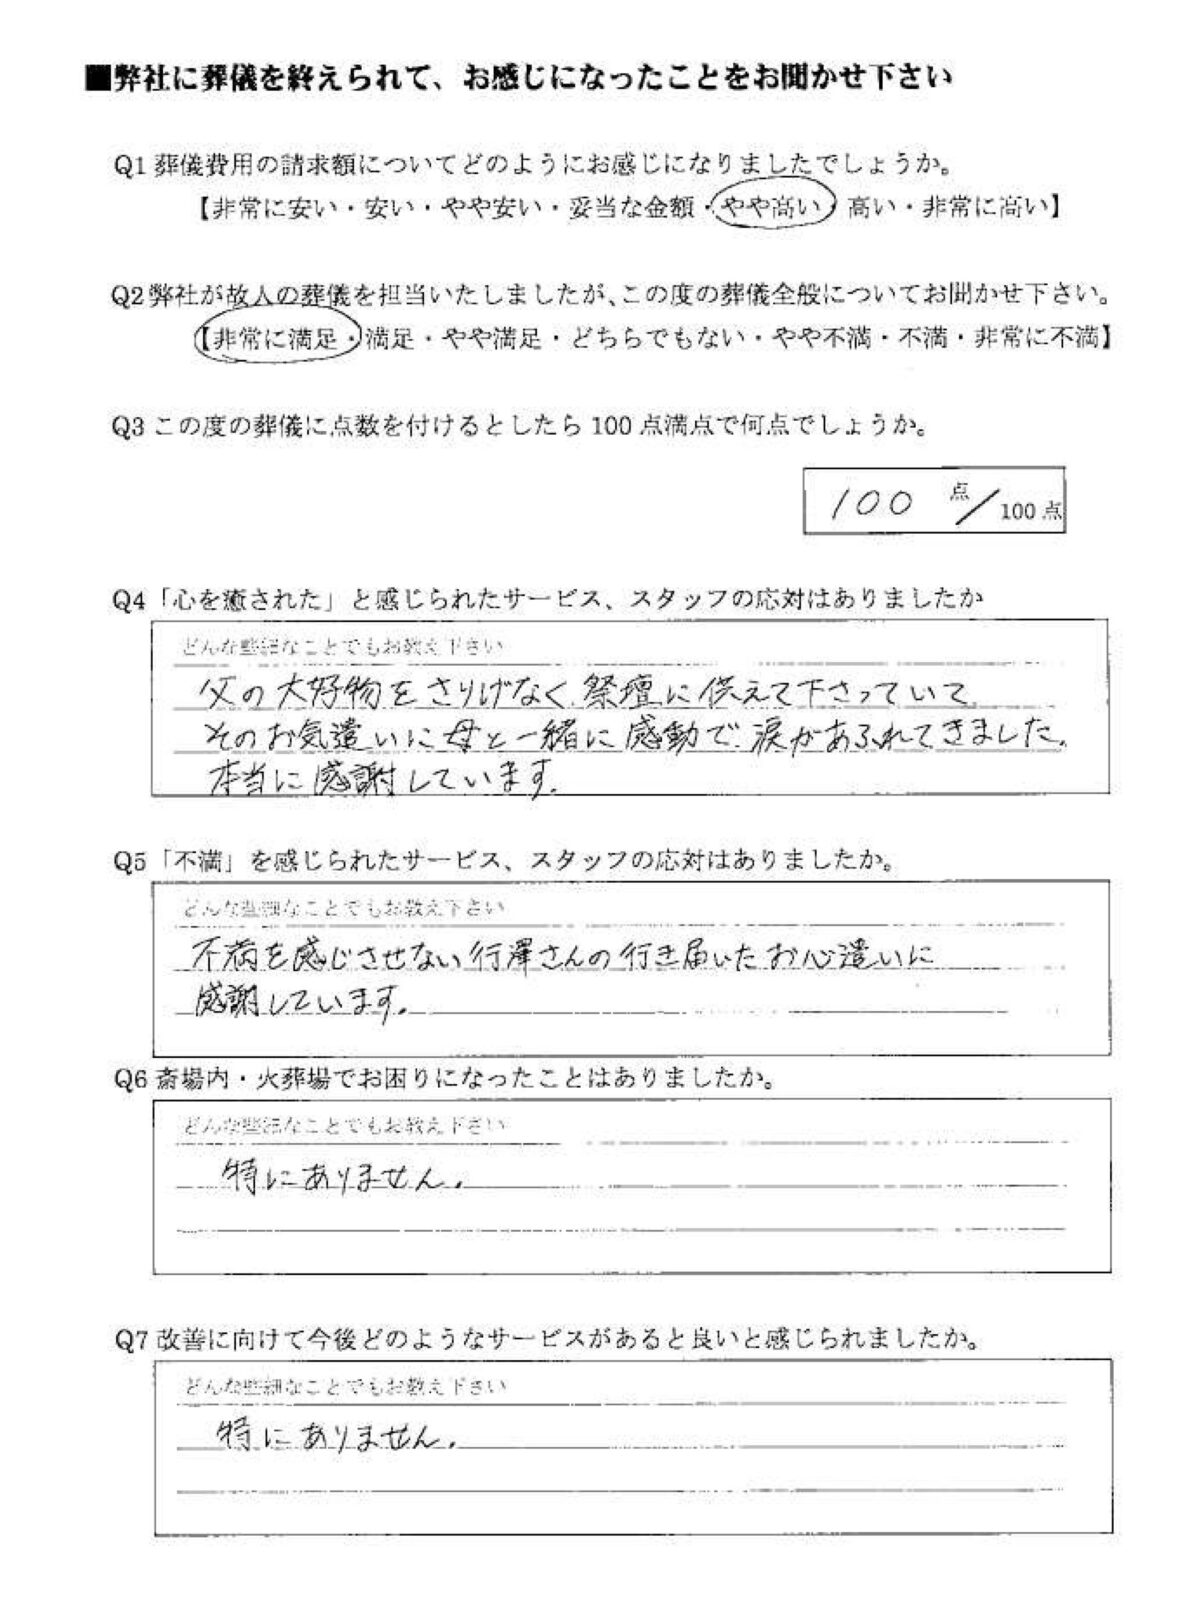 ■弊社に葬儀を終えられて、お感じになったことをお聞かせ下さい
Q1 葬儀費用の請求額についてどのようにお感じになりましたでしょうか。
【非常に安い・安い・やや安い・妥当な金額・やや高い・高い・非常に高い】
Q2 弊社が故人の葬儀を担当いたしましたが、この度の葬儀全般についてお聞かせ下さい。
【非常に満足・満足・やや満足・どちらでもない・やや不満・不満・非常に不満】
Q3 この度の葬儀に点数を付けるとしたら 100 点満点で何点でしょうか。
100 点/100 点
Q4「心を癒された」と感じられたサービス、スタッフの応対はありましたか
どんな些細なことでもお教え下さい
父の大好物をさりげなく祭壇に供えて下さっていて
そのお気遣いに母と一緒に感動で涙があふれてきました。
本当に感謝しています。
Q5「不満」を感じられたサービス、スタッフの応対はありましたか。
どんな些細なことでもお教え下さい
不満を感じさせない行澤さんの行き届いたお心遣いに
感謝しています。
Q6 斎場内・火葬場でお困りになったことはありましたか。
どんな些細なことでもお教え下さい
特にありません。
Q7 改善に向けて今後どのようなサービスがあると良いと感じられましたか。
どんな些細なことでもお教え下さい
特にありません。